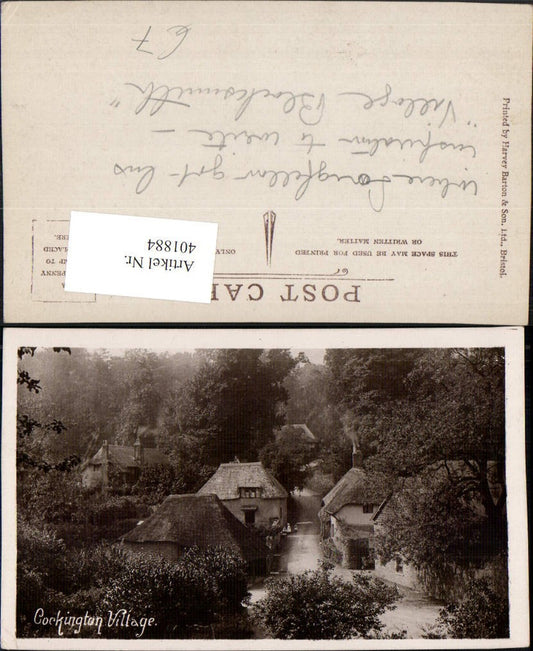 POST CAR
THIS SPACE MAY BE USED FOR PRINTED
OR WRITTEN MATTER.
ONLY.
PENNY
UP TO
PLACED
RE.
Artikel Nr.
401884
Where Longfellow got his
inspiration to write —
"Village Blacksmith"
67
Printed by Harvey Barton & Son, Ltd., Bristol.
Cockington Village.